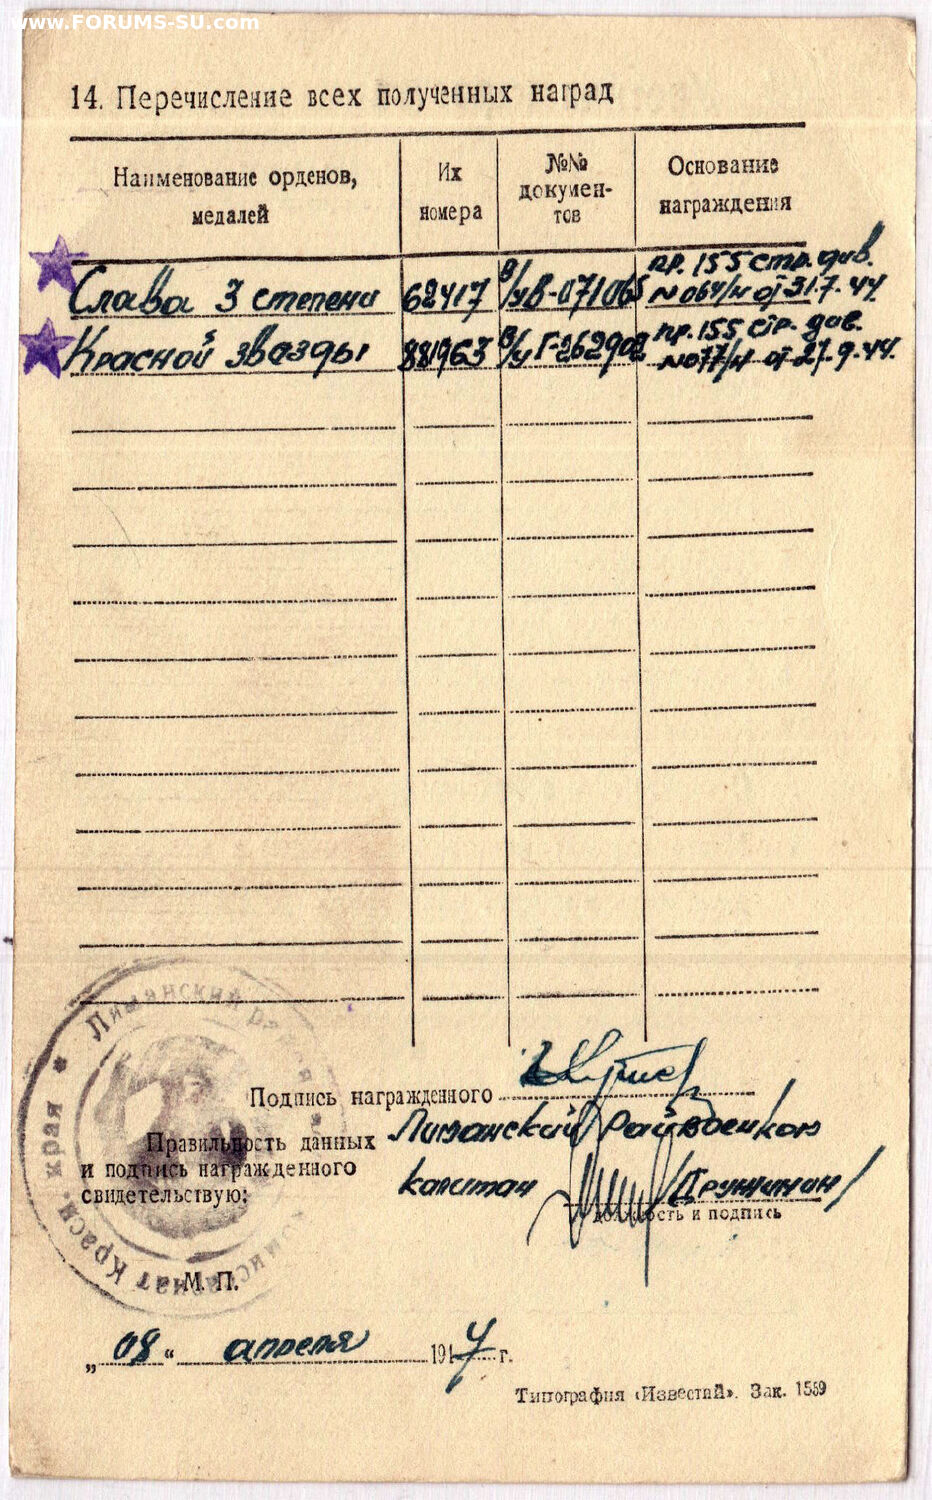 www.FORUMS-SU.com
14. Перечисление всех полученных наград
Наименование орденов, медалей
Их номера
№№ докумен-тов
Основание награждения
Слава 3 степени 62417 в/у В-071065 пр. 155 стр. див. №064/н от 31.7.44
Красной звазды 881963 в/у Г-262902 пр. 155 стр. див. №077/н от 27.9.44.
Подпись награжденного
Правильность данных
и подпись награжденного
свидетельствую:
Лиманский Райвоенком
капитан /Дружинин/
должность и подпись
Лиманский
Красн. края *
М. П.
„08“ апреля 1947 г.
Типография «Известий». Зак. 1559